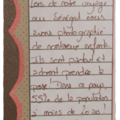 Lors de notre voyage
au Sénégal nous
avons photographié
de nombreux enfants.
Ils sont partout et
adorent prendre la
pose. Dans ce pays,
55% de la population
a moins de 20 ans